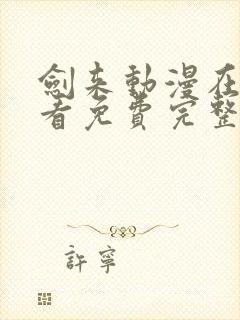 劍来動漫在
看免費完整
許寧